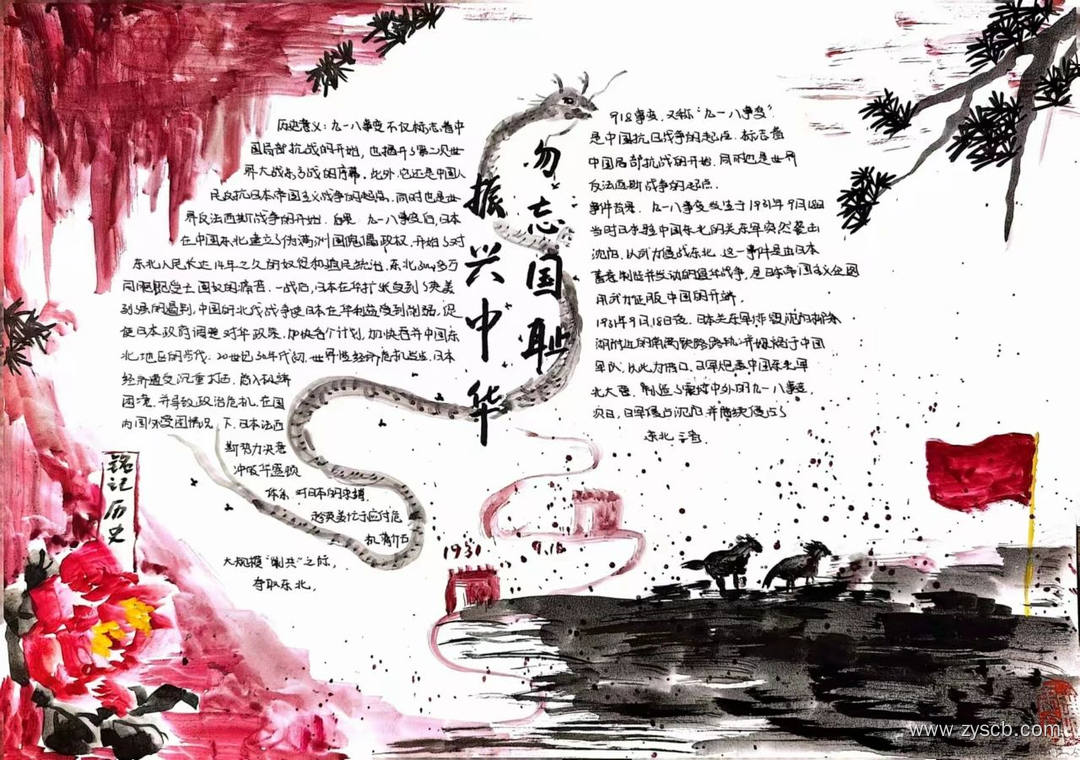 勿忘国耻
振兴中华
历史意义：九一八事变不仅标志着中
国局部抗战的开始，也揭开了第二次世
界大战东方战的序幕，此外，它还是中国人
民反抗日本帝国主义战争的起点，同时也是世
界反法西斯战争的开始．后果：九一八事变后，日本
在中国东北建立了伪满洲国傀儡政权，开始了对
东北人民长达14年之久的奴役和殖民统治，东北3000多万
同胞 国 的痛苦．一战后，日本在华扩张受到了英美
到 的遏制，中国的北伐战争使日本在华利益受到削弱，促
使日本政府调整对华政策，加快 计划，加快吞并中国东
北地区的步伐．20世纪30年代初，世界性经济危机 ，日本
经济遭受沉重打击，陷入极端
困境，并导致政治危机，在国
内国外受困情况下，日本法西
斯势力决意
冲破华盛顿
体系，对日本的束缚，
趁英美忙于应付危
机蒋介石
大规模“剿共”之际，
夺取东北．
918事变，又称“九一八事变”
是中国抗日战争的起点．标志着
中国局部抗战的开始，同时也是世界
反法西斯战争的起点．
事件背景：九一八事变发生于1931年9月18日
当时日本驻中国东北的关东军突然袭击
沈阳，以武力侵战东北，这一事件是由日本
蓄意制造并发动的侵华战争，是日本帝国主义企图
用武力征服中国的开端．
1931年9月18日夜，日本关东军炸毁沈阳柳条
湖附近的南满铁路路轨，并嫁祸于中国
军队，以此为借口，日军炮轰中国东北军
北大营，制造了震惊中外的九一八事变
次日，日军侵占沈阳，并陆续侵占了
东北三省．
铭记历史
1931 9.18
www.zyscb.com